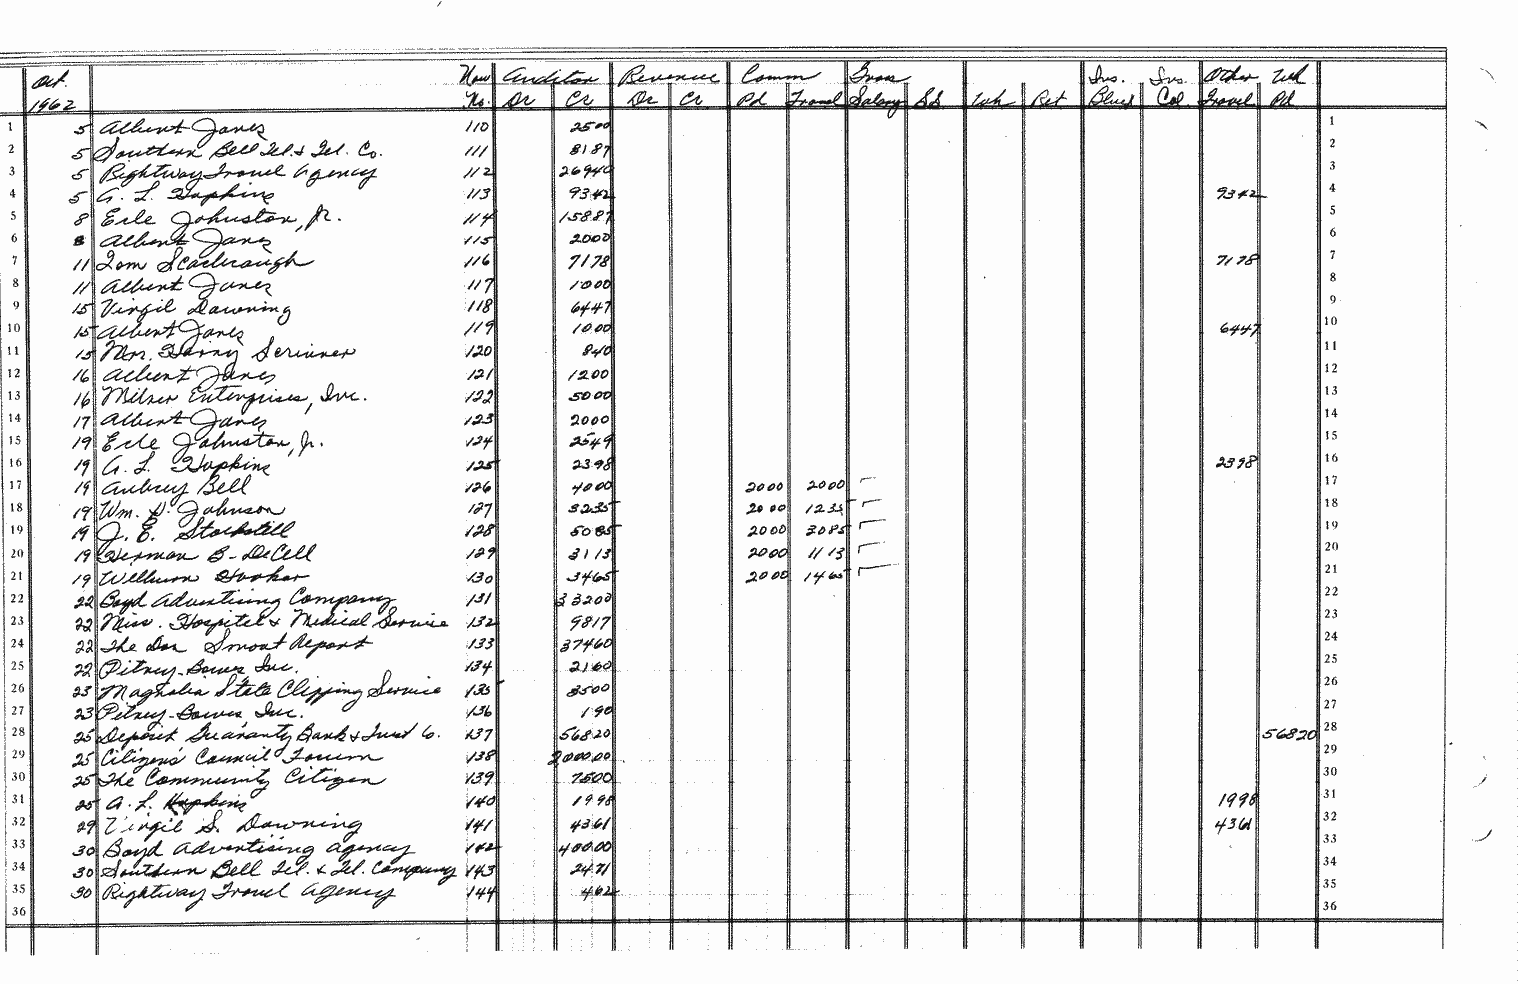 Oct. Auditor Revenue Comm Gross Ins. Ins. Other Wh
1962 No. Dr Cr Dr Cr Pd Travel Salary SS Wh Ret Blue Col Travel Pd
1 5 Albert Jones 110 2500 1
2 5 Southern Bell Tel. & Tel. Co. 111 8187 2
3 5 Rightway Travel Agency 112 26940 3
4 5 A. L. Hopkins 113 9342 9342 4
5 8 Erle Johnston, Jr. 114 15887 5
6 8 Albert Jones 115 2000 6
7 11 Tom Scarbrough 116 7178 7178 7
8 11 Albert Jones 117 1000 8
9 15 Virgil Downing 118 6447 9
10 15 Albert Jones 119 1000 6447 10
11 15 Mrs. Harry Scrivner 120 840 11
12 16 Albert Jones 121 1200 12
13 16 Milner Enterprises, Inc. 122 5000 13
14 17 Albert Jones 123 2000 14
15 19 Erle Johnston, Jr. 124 2549 15
16 19 A. L. Hopkins 125 2398 2398 16
17 19 Aubrey Bell 126 4000 2000 2000 17
18 19 Wm. H. Johnson 127 3235 2000 1235 18
19 19 J. E. Stockstill 128 5085 2000 3085 19
20 19 Herman B. DeCell 129 3113 2000 1113 20
21 19 Wilburn Hooker 130 3465 2000 1465 21
22 22 Boyd Advertising Company 131 33200 22
23 22 Miss. Hospital & Medical Service 132 9817 23
24 22 The Dan Smoot Report 133 37460 24
25 22 Pitney-Bowes Inc. 134 2160 25
26 23 Magnolia State Clipping Service 135 3500 26
27 23 Pitney-Bowes, Inc. 136 190 27
28 25 Deposit Guaranty Bank & Trust Co. 137 56820 56820 28
29 25 Citizens' Council Forum 138 200000 29
30 25 The Community Citizen 139 7500 30
31 25 A. L. Hopkins 140 1998 1998 31
32 29 Virgil S. Downing 141 4361 4361 32
33 30 Boyd Advertising Agency 142 40000 33
34 30 Southern Bell Tel. & Tel. Company 143 2471 34
35 30 Rightway Travel Agency 144 462 35
36 36